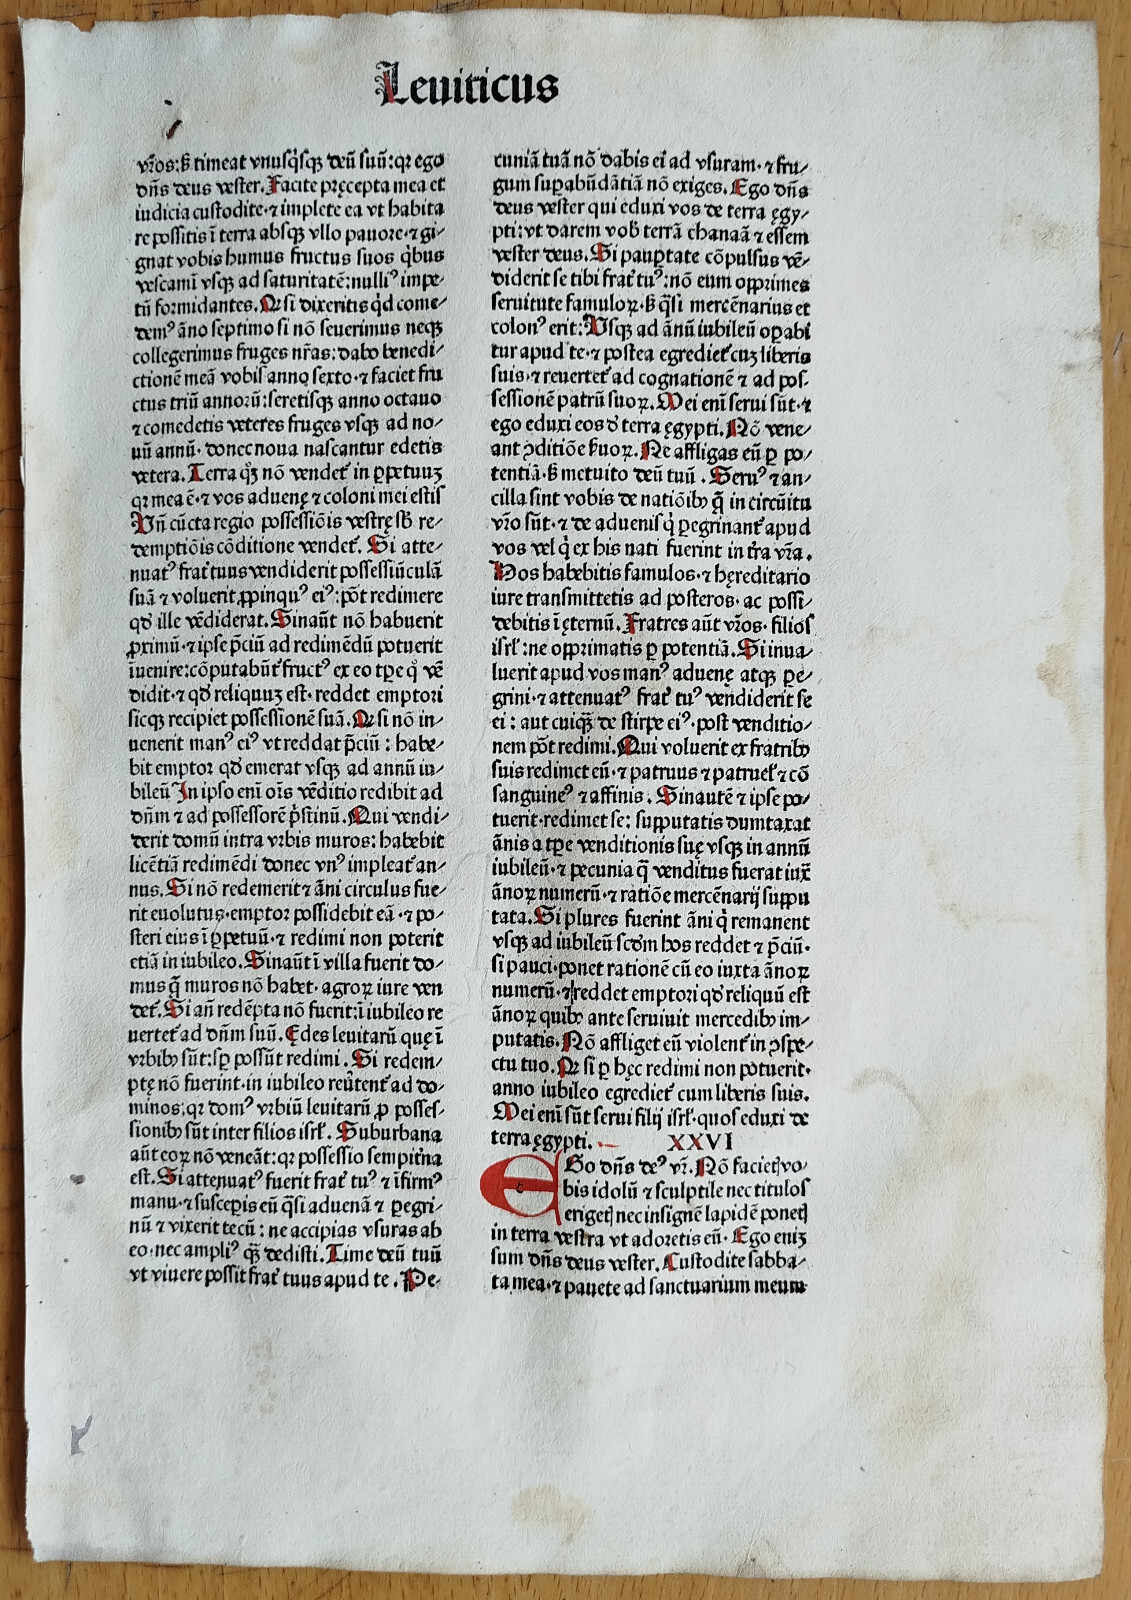 Leuiticus
vr̄os: ß timeat vnusq̇sqꝫ deū suū: qꝛ ego
dn̄s deus vester. Facite pręcepta mea et
iudicia custodite ⁊ implete ea vt habita
re possitis ī terra absqꝫ vllo pauore ⁊ gi/
gnat vobis humus fructus suos q̇bus
vescamī vsqꝫ ad saturitatē: nulliꝰ impe
tū formidantes. Qꝛ si dixeritis qd̓ come/
demꝰ āno septimo si nō seuerimus neqꝫ
collegerimus fruges nr̄as: dabo benedi/
ctionē meā vobis anno sexto ⁊ faciet fru
ctus triū annorū: seretisqꝫ anno octauo
⁊ comedetis veteres fruges vsqꝫ ad no/
uū annū. donec noua nascantur edetis
vetera. Terra qꝫ nō vendet̃ in ꝑpetuuꝫ
qꝛ mea ē ⁊ vos aduenę ⁊ coloni mei estis
Vn̄ cūcta regio possessiōis vestrę sb̄ re/
demptiōis cōditione vendet̃. Si atte/
nuatꝰ frat̃ tuus vendiderit possessiūculā
suā ⁊ voluerit ꝓpinquꝰ eiꝰ: pōt redimere
qd̓ ille vēdiderat. Sinaūt nō habuerit
ꝓximū ⁊ ipse p̄ciū ad redimēdū potuerit
īuenire: cōputabūt̃ fructꝰ ex eo tꝑe qͦ vē
didit ⁊ qd̓ reliquuꝫ est reddet emptori
sicqꝫ recipiet possessionē suā. Qꝛ si nō in/
uenerit manꝰ eiꝰ vt reddat p̄ciū: habe/
bit emptor qd̓ emerat vsqꝫ ad annū iu/
bileū In ipso enī oīs vēditio redibit ad
dn̄m ⁊ ad possessorē p̓stinū. Qui vendi/
derit domū intra vrbis muros: habebit
licētiā redimēdi donec vnꝰ impleat̃ an/
nus. Si nō redemerit ⁊ āni circulus fue/
rit euolutus. emptor possidebit eā ⁊ po/
steri eius ī ꝑpetuū ⁊ redimi non poterit
etiā in iubileo. Sinaūt ī villa fuerit do/
mus q̄ muros nō habet. agroꝝ iure ven
det̃. Si an̄ redēpta nō fuerit: ī iubileo re
uertet̃ ad dn̄m suū. Ędes leuitarū quę ī
vrbibꝫ sūt: sꝑ possūt redimi. Si redem/
ptę nō fuerint. in iubileo reūtent̃ ad do/
minos: qꝛ domꝰ vrbiū leuitarū ꝓ posses/
sionibꝫ sūt inter filios isrł. Suburbana
aūt eoꝝ nō veneāt: qꝛ possessio sempit̃na
est. Si attenuatꝰ fuerit frat̃ tuꝰ ⁊ īfirmꝰ
manu ⁊ susceꝑis eū q̄si aduenā ⁊ ꝑegri/
nū ⁊ vixerit tecū: ne accipias vsuras ab
eo. nec ampliꝰ q̄ꝫ dedisti. Time deū tuū
vt viuere possit frat̃ tuus apud te. Pe/
cuniā tuā nō dabis ei ad vsuram ⁊ fru/
gum suꝑabūdātiā nō exiges. Ego dn̄s
deus vester qui eduxi vos de terra ęgy/
pti: vt darem vob̄ terrā chanaā ⁊ essem
vester deus. Si pauꝑtate cōpulsus vē/
diderit se tibi frat̃ tuꝰ: nō eum opprimes
seruitute famuloꝝ. ß q̄si mercēnarius et
colonꝰ erit: Vsqꝫ ad ānū iubileū oꝑabi
tur apud te ⁊ postea egrediet̃ cuꝫ liberis
suis ⁊ reuertet̃ ad cognationē ⁊ ad pos/
sessionē patrū suoꝝ. Mei enī serui sūt ⁊
ego eduxi eos d̓ terra ęgypti. Nō vene/
ant ꝯditiōe ẜuoꝝ. Ne affligas eū ꝑ po/
tentiā. ß metuito deū tuū. Seruꝰ ⁊ an/
cilla sint vobis de natiōibꝫ q̄ in circūitu
vr̄o sūt ⁊ de aduenis q̇ ꝑegrinant̃ apud
vos vel q̇ ex his nati fuerint in tr̄a vr̄a.
Hos habebitis famulos ⁊ hęreditario
iure transmittetis ad posteros. ac possi/
debitis ī ęternū. Fratres aūt vr̄os. filios
isrł: ne opprimatis ꝑ potentiā. Si inua/
luerit apud vos manꝰ aduenę atqꝫ ꝑe/
grini ⁊ attenuatꝰ frat̃ tuꝰ vendiderit se
ei: aut cuiqꝫ de stirpe eiꝰ. post venditio/
nem pōt redimi. Qui voluerit ex fratribꝫ
suis redimet eū ⁊ patruus ⁊ patruel̃ ⁊ cō
sanguineꝰ ⁊ affinis. Sinautē ⁊ ipse po/
tuerit. redimet se: supputatis dumtaxat
ānis a tꝑe venditionis suę vsqꝫ in annū
iubileū ⁊ pecunia q̄ venditus fuerat iux̄
ānoꝝ numerū ⁊ ratiōe mercēnarij suppu
tata. Si plures fuerint āni q̇ remanent
vsqꝫ ad iubileū scd̓m hos reddet ⁊ p̄ciū.
si pauci. ponet rationē cū eo iuxta ānoꝝ
numerū ⁊ reddet emptori qd̓ reliquū est
ānoꝝ quibꝫ ante seruiuit mercedibꝫ im/
putatis. Nō affliget eū violent̃ in ꝯspe/
ctu tuo. Qꝛ si ꝑ hęc redimi non potuerit.
anno iubileo egrediet̃ cum liberis suis.
Mei enī sūt serui filij isrł. quos eduxi de
terra ęgypti. XXVI
EGo dn̄s deꝰ vr̄. Nō facietꝭ vo/
bis idolū ⁊ sculptile nec titulos
erigetꝭ nec insignē lapidē ponetꝭ
in terra vestra vt adoretis eū. Ego eniꝫ
sum dn̄s deus vester. Custodite sabba/
ta mea ⁊ pauete ad sanctuarium meum